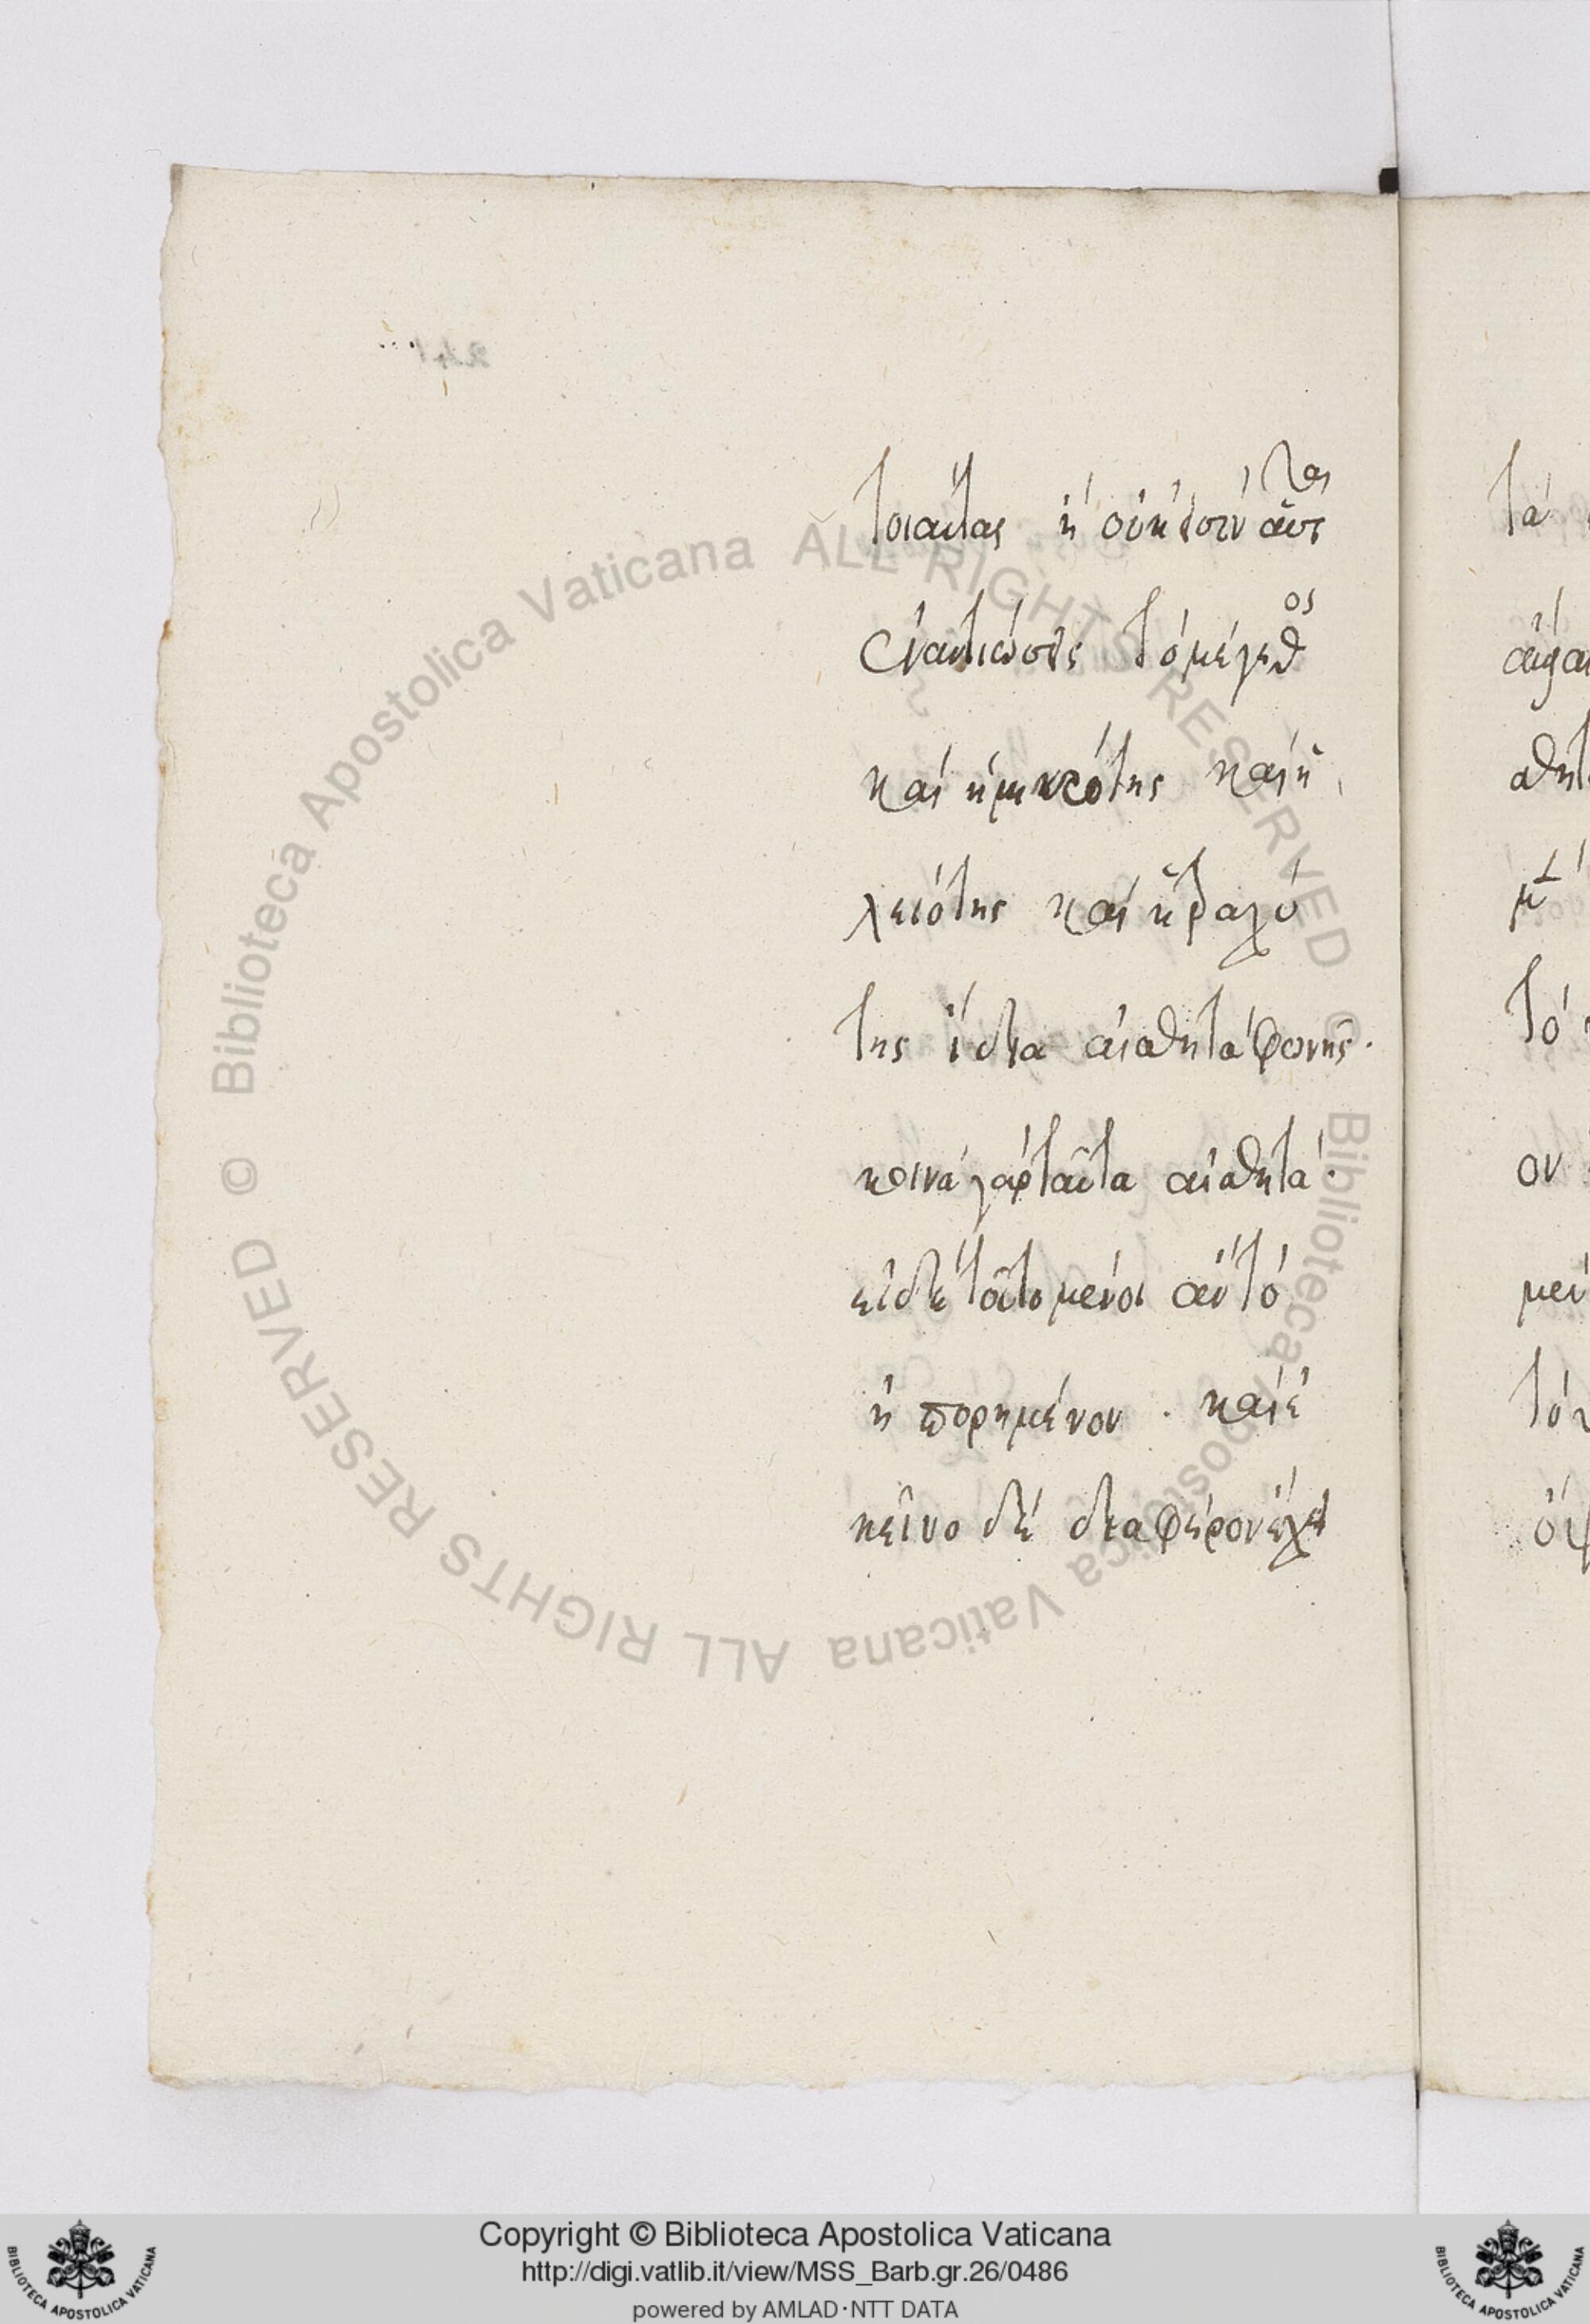 τοιαύτας ἢ οὐκ ἔστιν αὐτὰς
ἐναντιώσεις τὸ μέγεθος
καὶ ἡ μικρότης καὶ ἡ
λειότης καὶ ἡ τραχύ
της ἴδια αἰσθητὰ φωνῆς.
κοινὰ γὰρ ταῦτα αἰσθητά.
εἰ δὲ τοῦτο μένοι αὐτὸ
ἠπορημένον. καὶ ἐ
κεῖνο δὲ διαφέρον ἔχει
τὰ
αἰσθητ
τὸ
ον
μεν
Copyright © Biblioteca Apostolica Vaticana
http://digi.vatlib.it/view/MSS_Barb.gr.26/0486
powered by AMLAD·NTT DATA
BIBLIOTECA APOSTOLICA VATICANA
BIBLIOTECA APOSTOLICA VATICANA
© Biblioteca Apostolica Vaticana ALL RIGHTS RESERVED
© Biblioteca Apostolica Vaticana ALL RIGHTS RESERVED